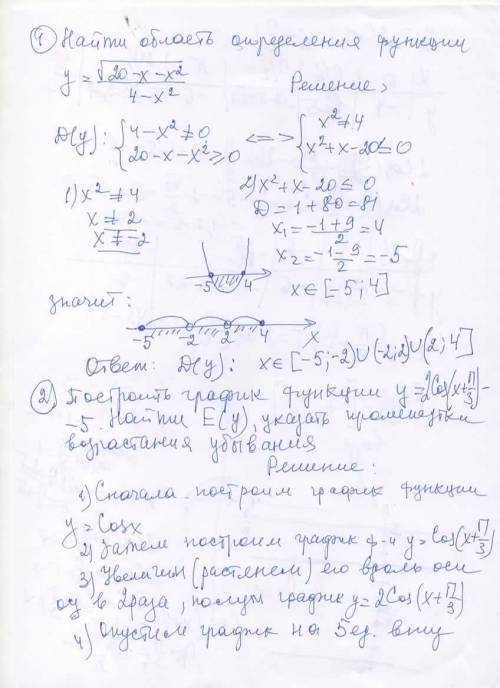 1) Найти область определения функции
y = √(20-x-x²) / (4-x²)
Решение:
D(y): { 4-x²≠0 <=> { x²≠4
{ 20-x-x²≥0 { x²+x-20≤0
1) x²≠4
x≠2
x≠-2
2) x²+x-20≤0
D=1+80=81
x₁=(-1+9)/2=4
x₂=(-1-9)/2=-5
x∈[-5;4]
-5 4
значит:
-5 -2 2 4 x
Ответ: D(y): x∈[-5;-2)∪(-2;2)∪(2;4]
2) Построить график функции y=2Cos(x+π/3)-
-5. Найти E(y), указать промежутки
возрастания убывания
Решение:
1) Сначала построим график функции
y=Cosx
2) Затем построим график ф-и y=Cos(x+π/3)
3) Увеличим (растянем) его вдоль оси
oy в 2 раза, получим график y=2Cos(x+π/3)
4) Опустим график на 5 ед. вниз